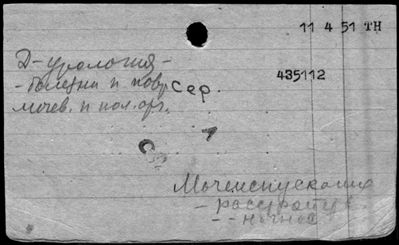 11 4 51 TH
Д-урология-
-болезни и повр
сер.
435112
мочев. и пол. орг.
1
Мочеиспускания
- расстройств
- - ночное